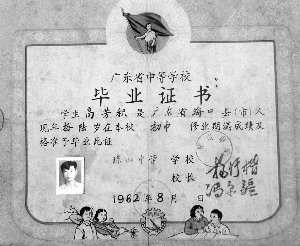 广东省中等学校
毕业证书
学生高芳积是广东省海口县(市)人
现年拾陆岁在本校初中修业期满成绩及
格准予毕业此证
琼山中学 学校
校长
1962年8月 日